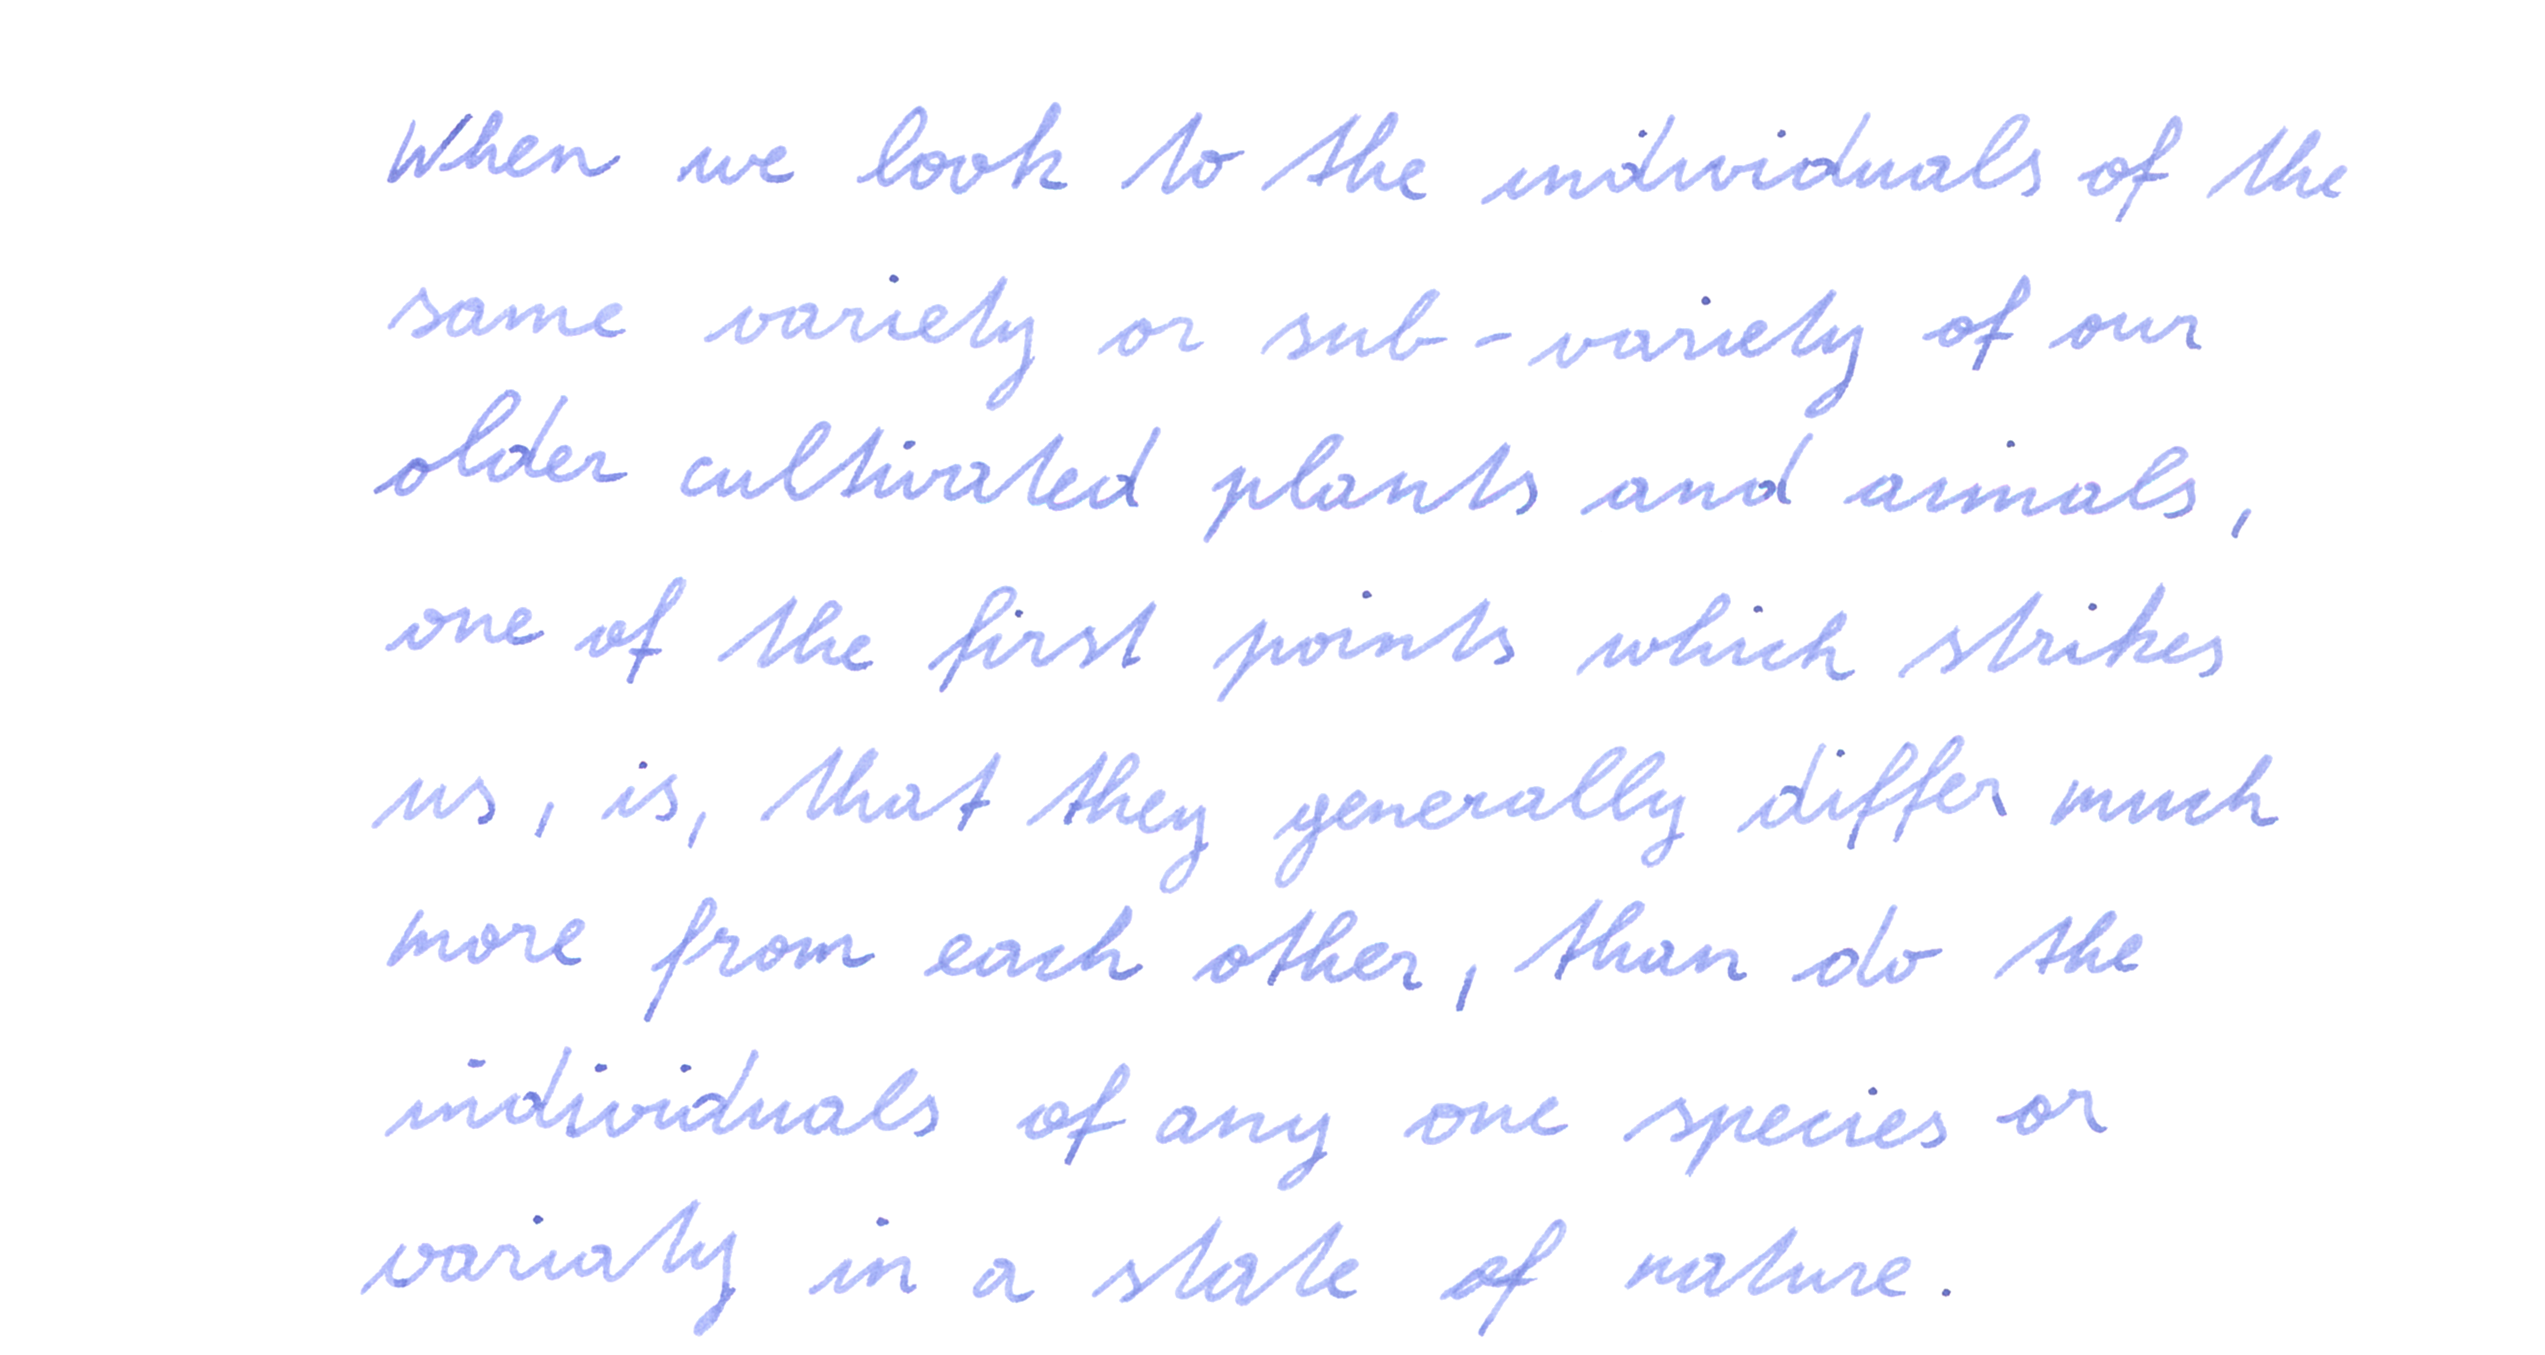 When we look to the individuals of the
same variety or sub-variety of our
older cultivated plants and aimals,
one of the first points which strikes
us, is, that they generally differ much
more from each other, than do the
individuals of any one species or
variaty in a state of nature.